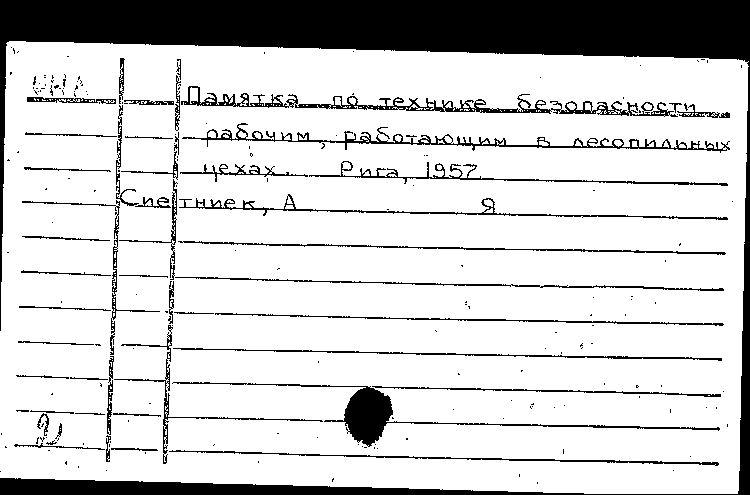 Памятка по технике безопасности
рабочим, работающим в лесопильных
цехах. Рига, 1957
Спетниек, А Я